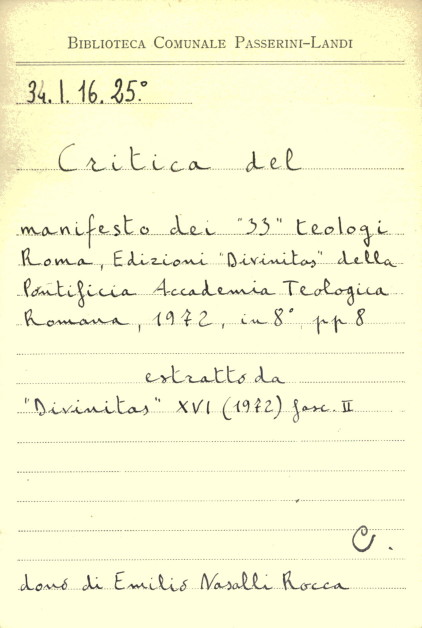 BIBLIOTECA COMUNALE PASSERINI-LANDI
34. I. 16. 25.°
Critica del
manifesto dei "33" teologi
Roma, Edizioni "Divinitas" della
Pontificia Accademia Teologica
Romana, 1972, in 8° pp 8
estratto da
"Divinitas" XVI (1972) fasc. II
C.
dono di Emilio Nasalli Rocca